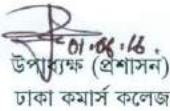 01.06.16.
উপাধ্যক্ষ (প্রশাসন)
ঢাকা কমার্স কলেজ